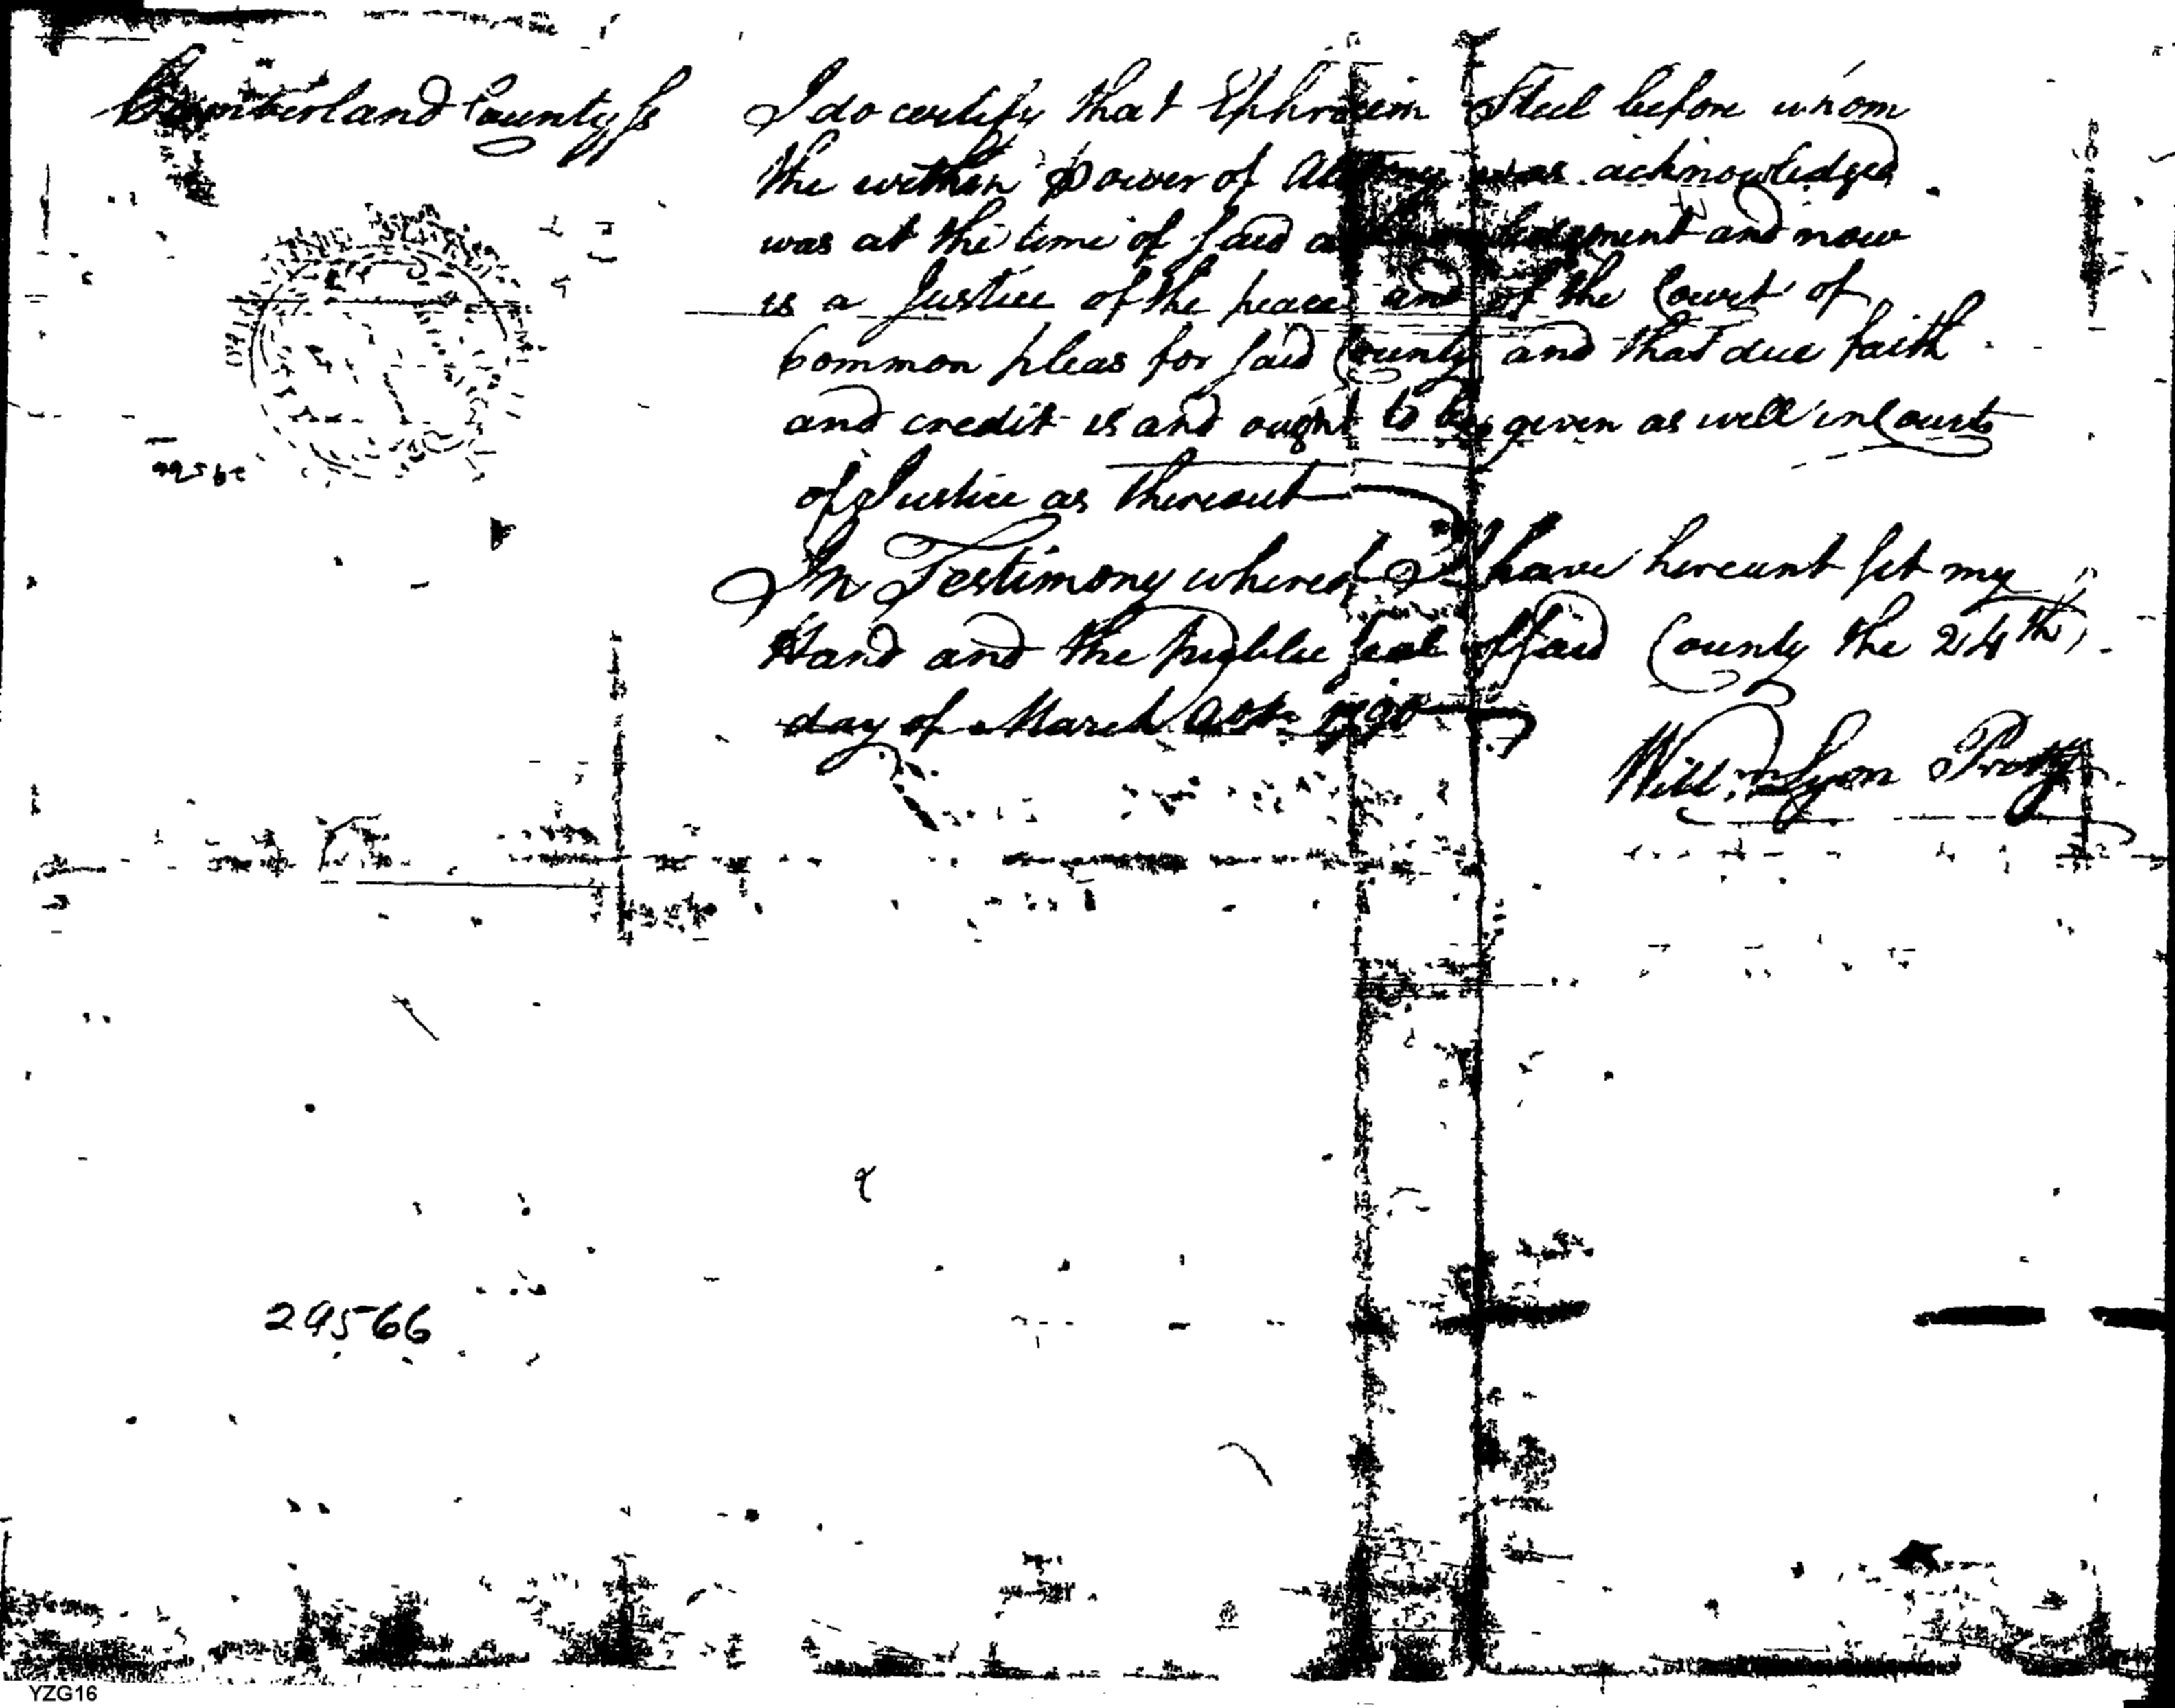 Cumberland County ss
I do certify that Ephraim Steel before whom
the within power of Attorney was acknowledged
was at the time of said acknowledgement and now
is a Justice of the peace and of the Court of
Common pleas for said County and that due faith
and credit is and ought to be given as well in Courts
of Justice as thereout
In Testimony whereof I have hereunt set my
Hand and the public seal of said County the 24th
day of March 1790
Will.m Lyon Proty
29566
YZG16